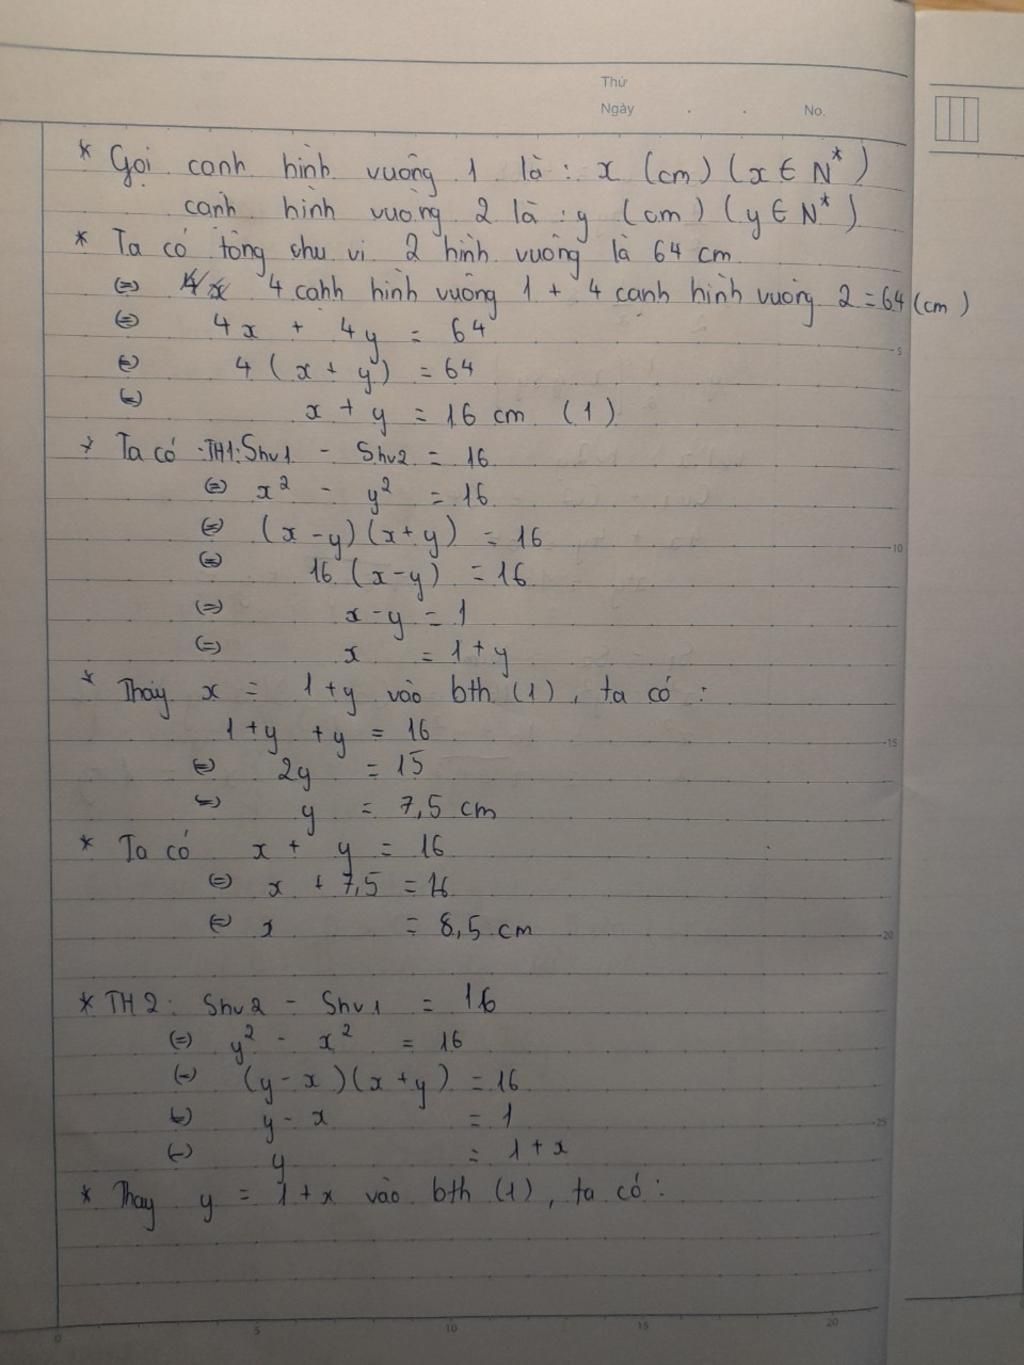 Thứ
Ngày . . No.
* Gọi cạnh hình vuông 1 là : x (cm) (x ∈ N*)
cạnh hình vuông 2 là : y (cm) (y ∈ N*)
* Ta có tổng chu vi 2 hình vuông là 64 cm
(=) 4 cạnh hình vuông 1 + 4 cạnh hình vuông 2 = 64 (cm)
(=) 4x + 4y = 64
(=) 4 (x + y) = 64
(=) x + y = 16 cm (1)
* Ta có : TH1: Shv1 - Shv2 = 16
(=) x² - y² = 16
(=) (x - y)(x + y) = 16
(=) 16 (x - y) = 16
(=) x - y = 1
(=) x = 1 + y
* Thay x = 1 + y vào bth (1), ta có :
1 + y + y = 16
(=) 2y = 15
(=) y = 7,5 cm
* Ta có x + y = 16
(=) x + 7,5 = 16
(=) x = 8,5 cm
* TH2: Shv2 - Shv1 = 16
(=) y² - x² = 16
(=) (y - x)(x + y) = 16
(=) y - x = 1
(=) y = 1 + x
* Thay y = 1 + x vào bth (1), ta có :
5
10
15
20
25
0 5 10 15 20